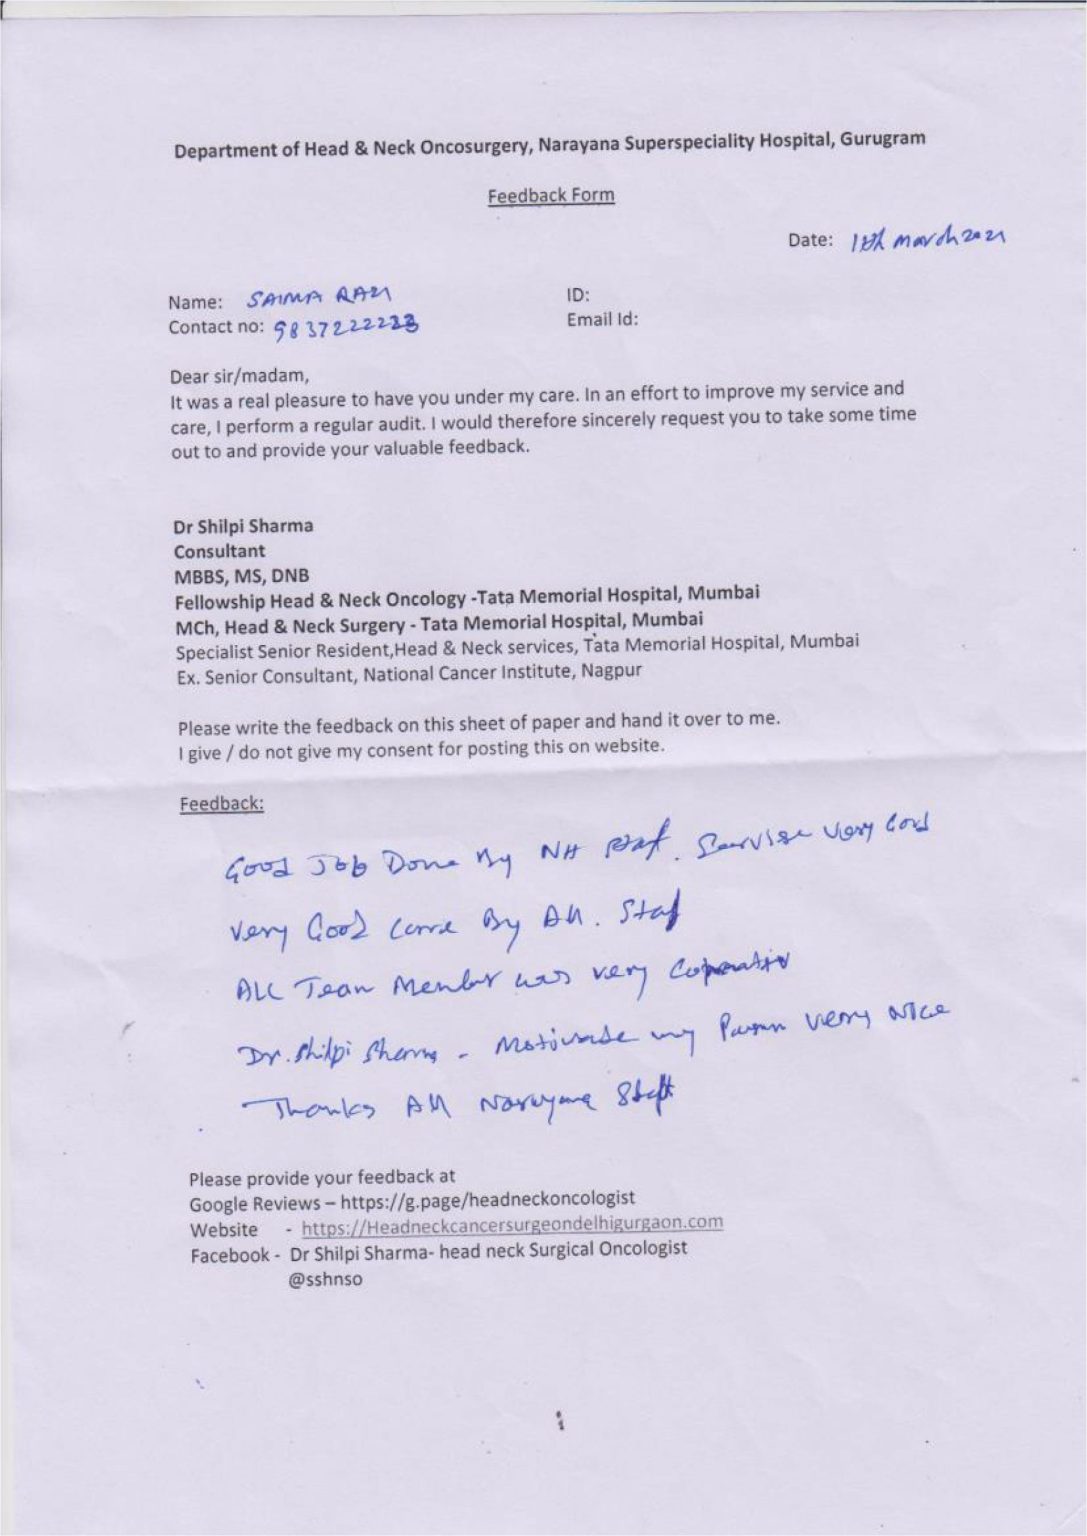 Department of Head & Neck Oncosurgery, Narayana Superspeciality Hospital, Gurugram
Feedback Form
Date: March 2021
Name: SAIMA RAZI
ID:
Contact no: 9837222223
Email Id:
Dear sir/madam,
It was a real pleasure to have you under my care. In an effort to improve my service and
care, I perform a regular audit. I would therefore sincerely request you to take some time
out to and provide your valuable feedback.
Dr Shilpi Sharma
Consultant
MBBS, MS, DNB
Fellowship Head & Neck Oncology -Tata Memorial Hospital, Mumbai
MCh, Head & Neck Surgery - Tata Memorial Hospital, Mumbai
Specialist Senior Resident,Head & Neck services, Tata Memorial Hospital, Mumbai
Ex. Senior Consultant, National Cancer Institute, Nagpur
Please write the feedback on this sheet of paper and hand it over to me.
I give / do not give my consent for posting this on website.
Feedback:
Good Job Done By NH Staf. Servise very Good
Very Good Care By All. Staf
All Team Member was very
Dr. Shilpi Sharma - Motivate my very Nice
Thanks All Narayana Staff
Please provide your feedback at
Google Reviews – https://g.page/headneckoncologist
Website - https://Headneckcancersurgeondelhigurgaon.com
Facebook - Dr Shilpi Sharma- head neck Surgical Oncologist
@sshnso